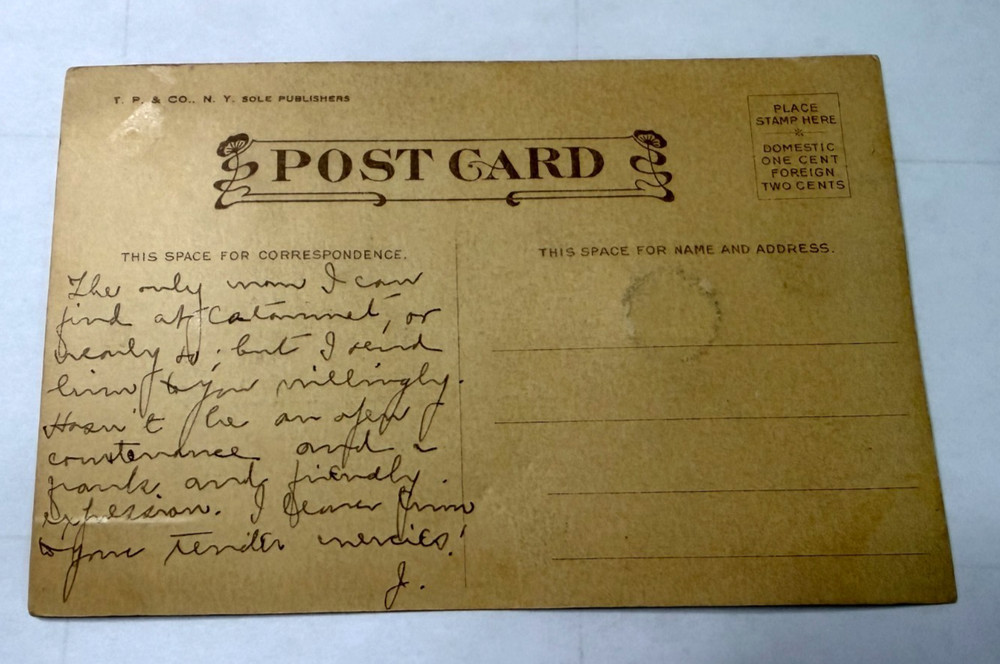 T. P. & CO., N. Y. SOLE PUBLISHERS
POST CARD
PLACE
STAMP HERE
DOMESTIC
ONE CENT
FOREIGN
TWO CENTS
THIS SPACE FOR CORRESPONDENCE.
The only man I can
find at Cataumet, or
nearly so; but I send
him to you willingly.
Hasn't he an open
countenance and a
frank and friendly
expression. I leave him
to your tender mercies!
J.
THIS SPACE FOR NAME AND ADDRESS.